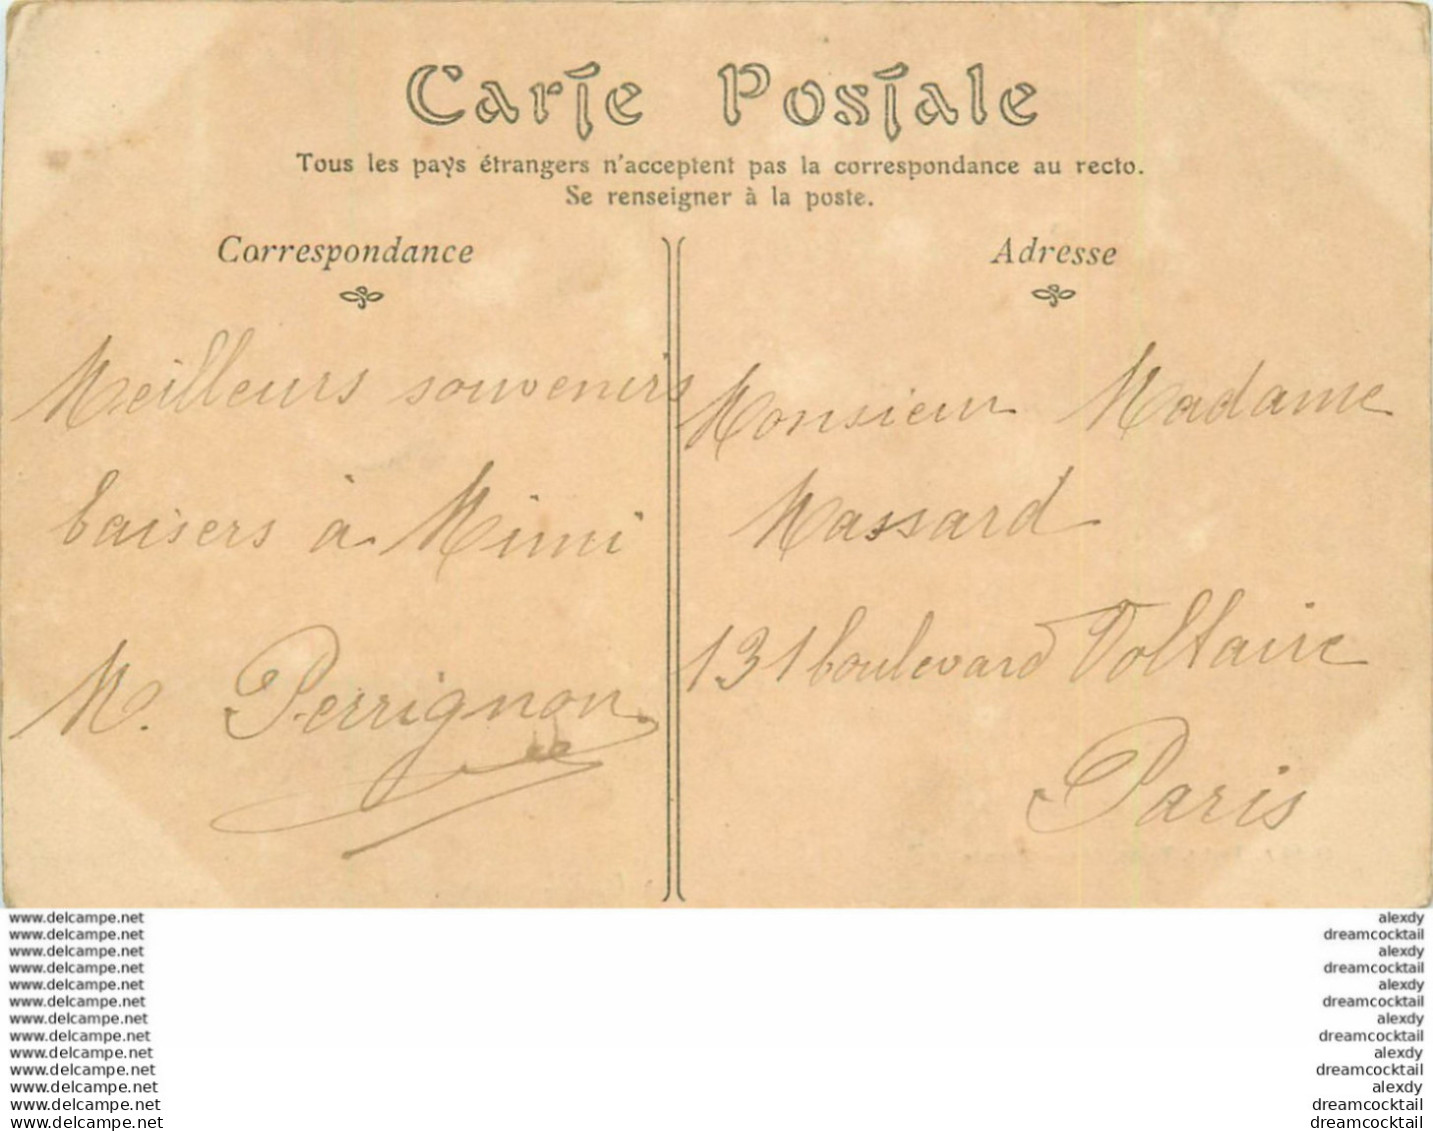 Carte Postale
Tous les pays étrangers n'acceptent pas la correspondance au recto.
Se renseigner à la poste.
Correspondance
Meilleurs souvenirs
baisers à Mimi
M. Perrignon
Adresse
Monsieur Madame
Massard
131 boulevard Voltaire
Paris
www.delcampe.net
www.delcampe.net
www.delcampe.net
www.delcampe.net
www.delcampe.net
www.delcampe.net
www.delcampe.net
www.delcampe.net
www.delcampe.net
www.delcampe.net
www.delcampe.net
www.delcampe.net
www.delcampe.net
alexdy
dreamcocktail
alexdy
dreamcocktail
alexdy
dreamcocktail
alexdy
dreamcocktail
alexdy
dreamcocktail
alexdy
dreamcocktail
dreamcocktail